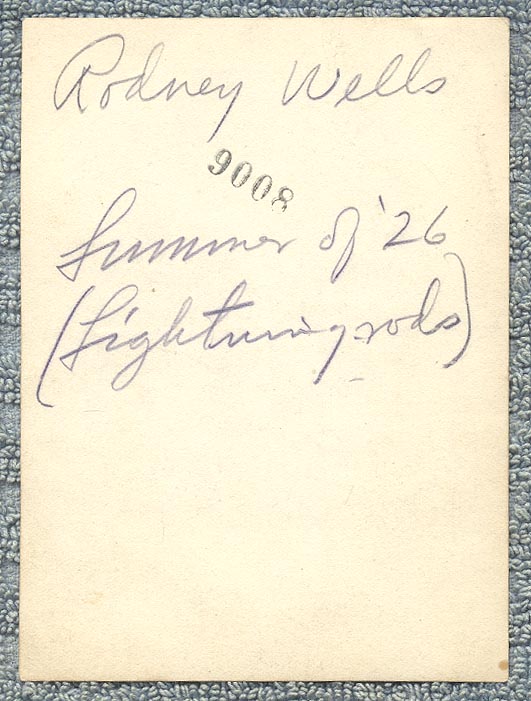 Rodney Wells
9008
Summer of '26
(Lightning rods)